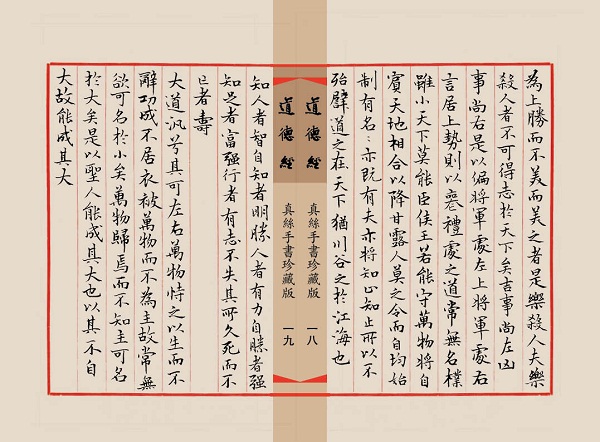 為上勝而不美而美之者是樂殺人夫樂
殺人者不可得志於天下矣吉事尚左凶
事尚右是以偏將軍處左上將軍處右
言居上勢則以喪禮處之道常無名樸
雖小天下莫能臣侯王若能守萬物將自
賓天地相合以降甘露人莫之令而自均始
制有名〻亦既有夫亦將知止知止所以不
殆譬道之在天下猶川谷之於江海也
道德經 真絲手書珍藏版 一八
道德經 真絲手書珍藏版 一九
知人者智自知者明勝人者有力自勝者强
知足者富强行者有志不失其所久死而不
亡者壽
大道汎兮其可左右萬物恃之以生而不
辭功成不居衣被萬物而不為主故常無
欲可名於小矣萬物歸焉而不知主可名
於大矣是以聖人能成其大也以其不自
大故能成其大